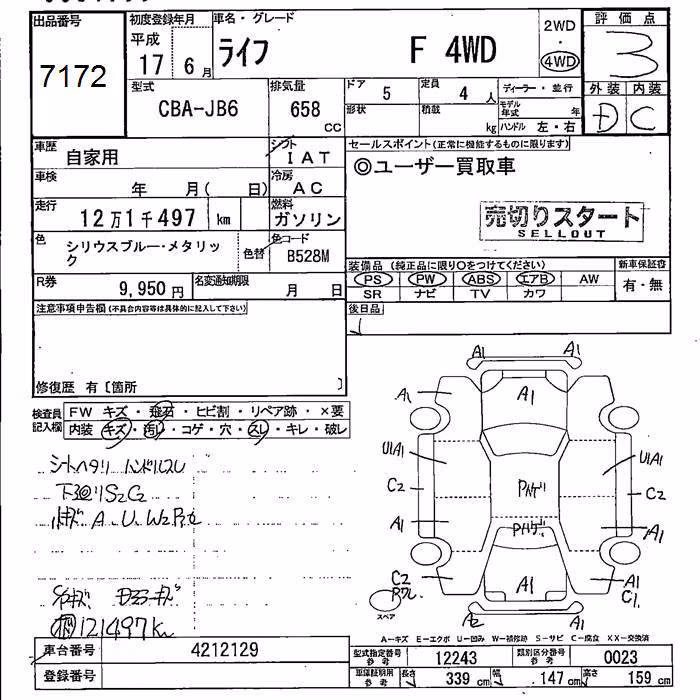 出品番号
7172
初度登録年月
平成
17 6 月
車名・グレード
ライフ F 4WD
2WD
・
4WD
評価点
3
外装 内装
D C
型式
CBA-JB6
排気量
658
cc
ドア 5
定員 4 人
形状
積載 kg
ディーラー・並行
モデル年式 年
ハンドル 左・右
車歴 自家用
シフト
I AT
車検 年 月( 日)
冷房
AC
走行 12万1千497 km
燃料
ガソリン
色 シリウスブルー・メタリッ
ク
色替
色コード
B528M
R券 9,950 円
名変通知期限 月 日
セールスポイント(正常に機能するものに限ります)
◎ユーザー買取車
売切りスタート
SELLOUT
装備品 (純正品に限り〇をつけてください)
PS PW ABS エアB AW
SR ナビ TV カワ
新車保証書
有・無
後日品
注意事項申告欄(不具合内容等は具体的に記入して下さい)
修復歴 有〔箇所 〕
検査員
記入欄
FW キズ・飛石・ヒビ割・リペア跡・×要
内装 キズ・汚レ・コゲ・穴・スレ・キレ・破レ
シートヘタリ ハンドルスレ
下廻りS2C2
A U W2
121497km
A1 A1
A1 A1
U1A1 U1A1
C2 C2
A1 A1
C2 A1
A1 C1
A2 A1
スペア
A-キズ E-エクボ U-凹み W-補修跡 S-サビ C-腐食 XX-交換済
車台番号 4212129
登録番号
型式指定番号
参考
12243
類別区分番号
参考
0023
車庫証明用
参考
長さ 339 cm 幅 147 cm 高さ 159 cm